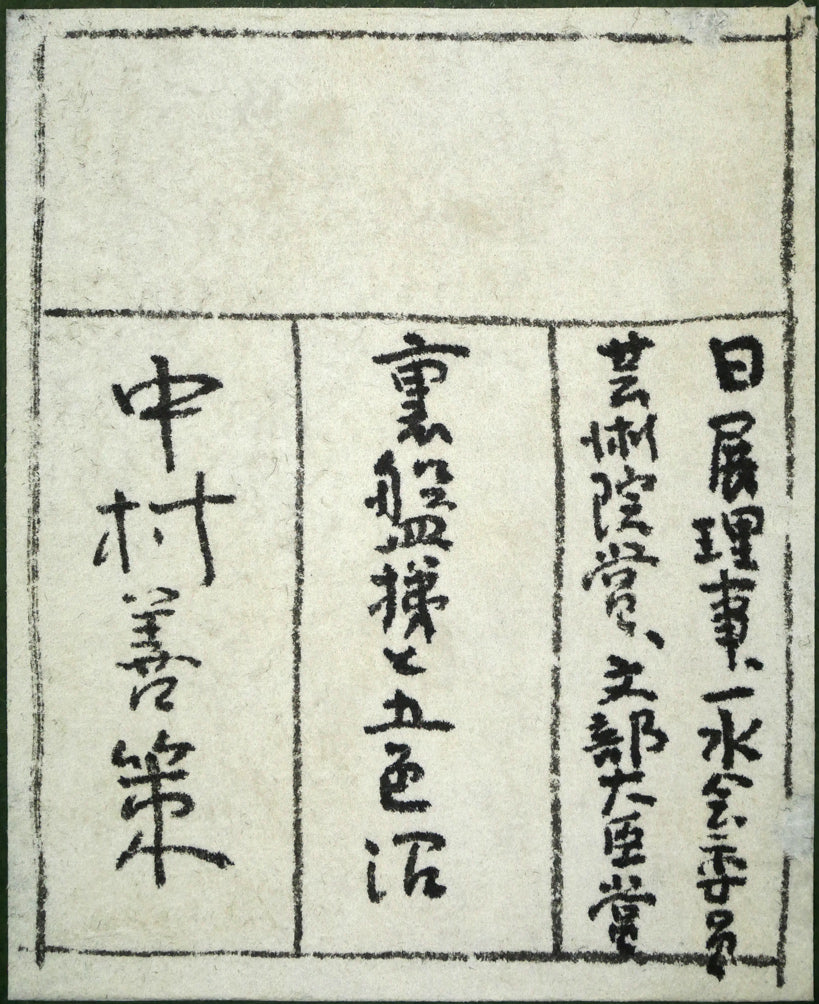 日展理事、一水会委員
芸術院賞、文部大臣賞
裏盤梯と五色沼
中村善策